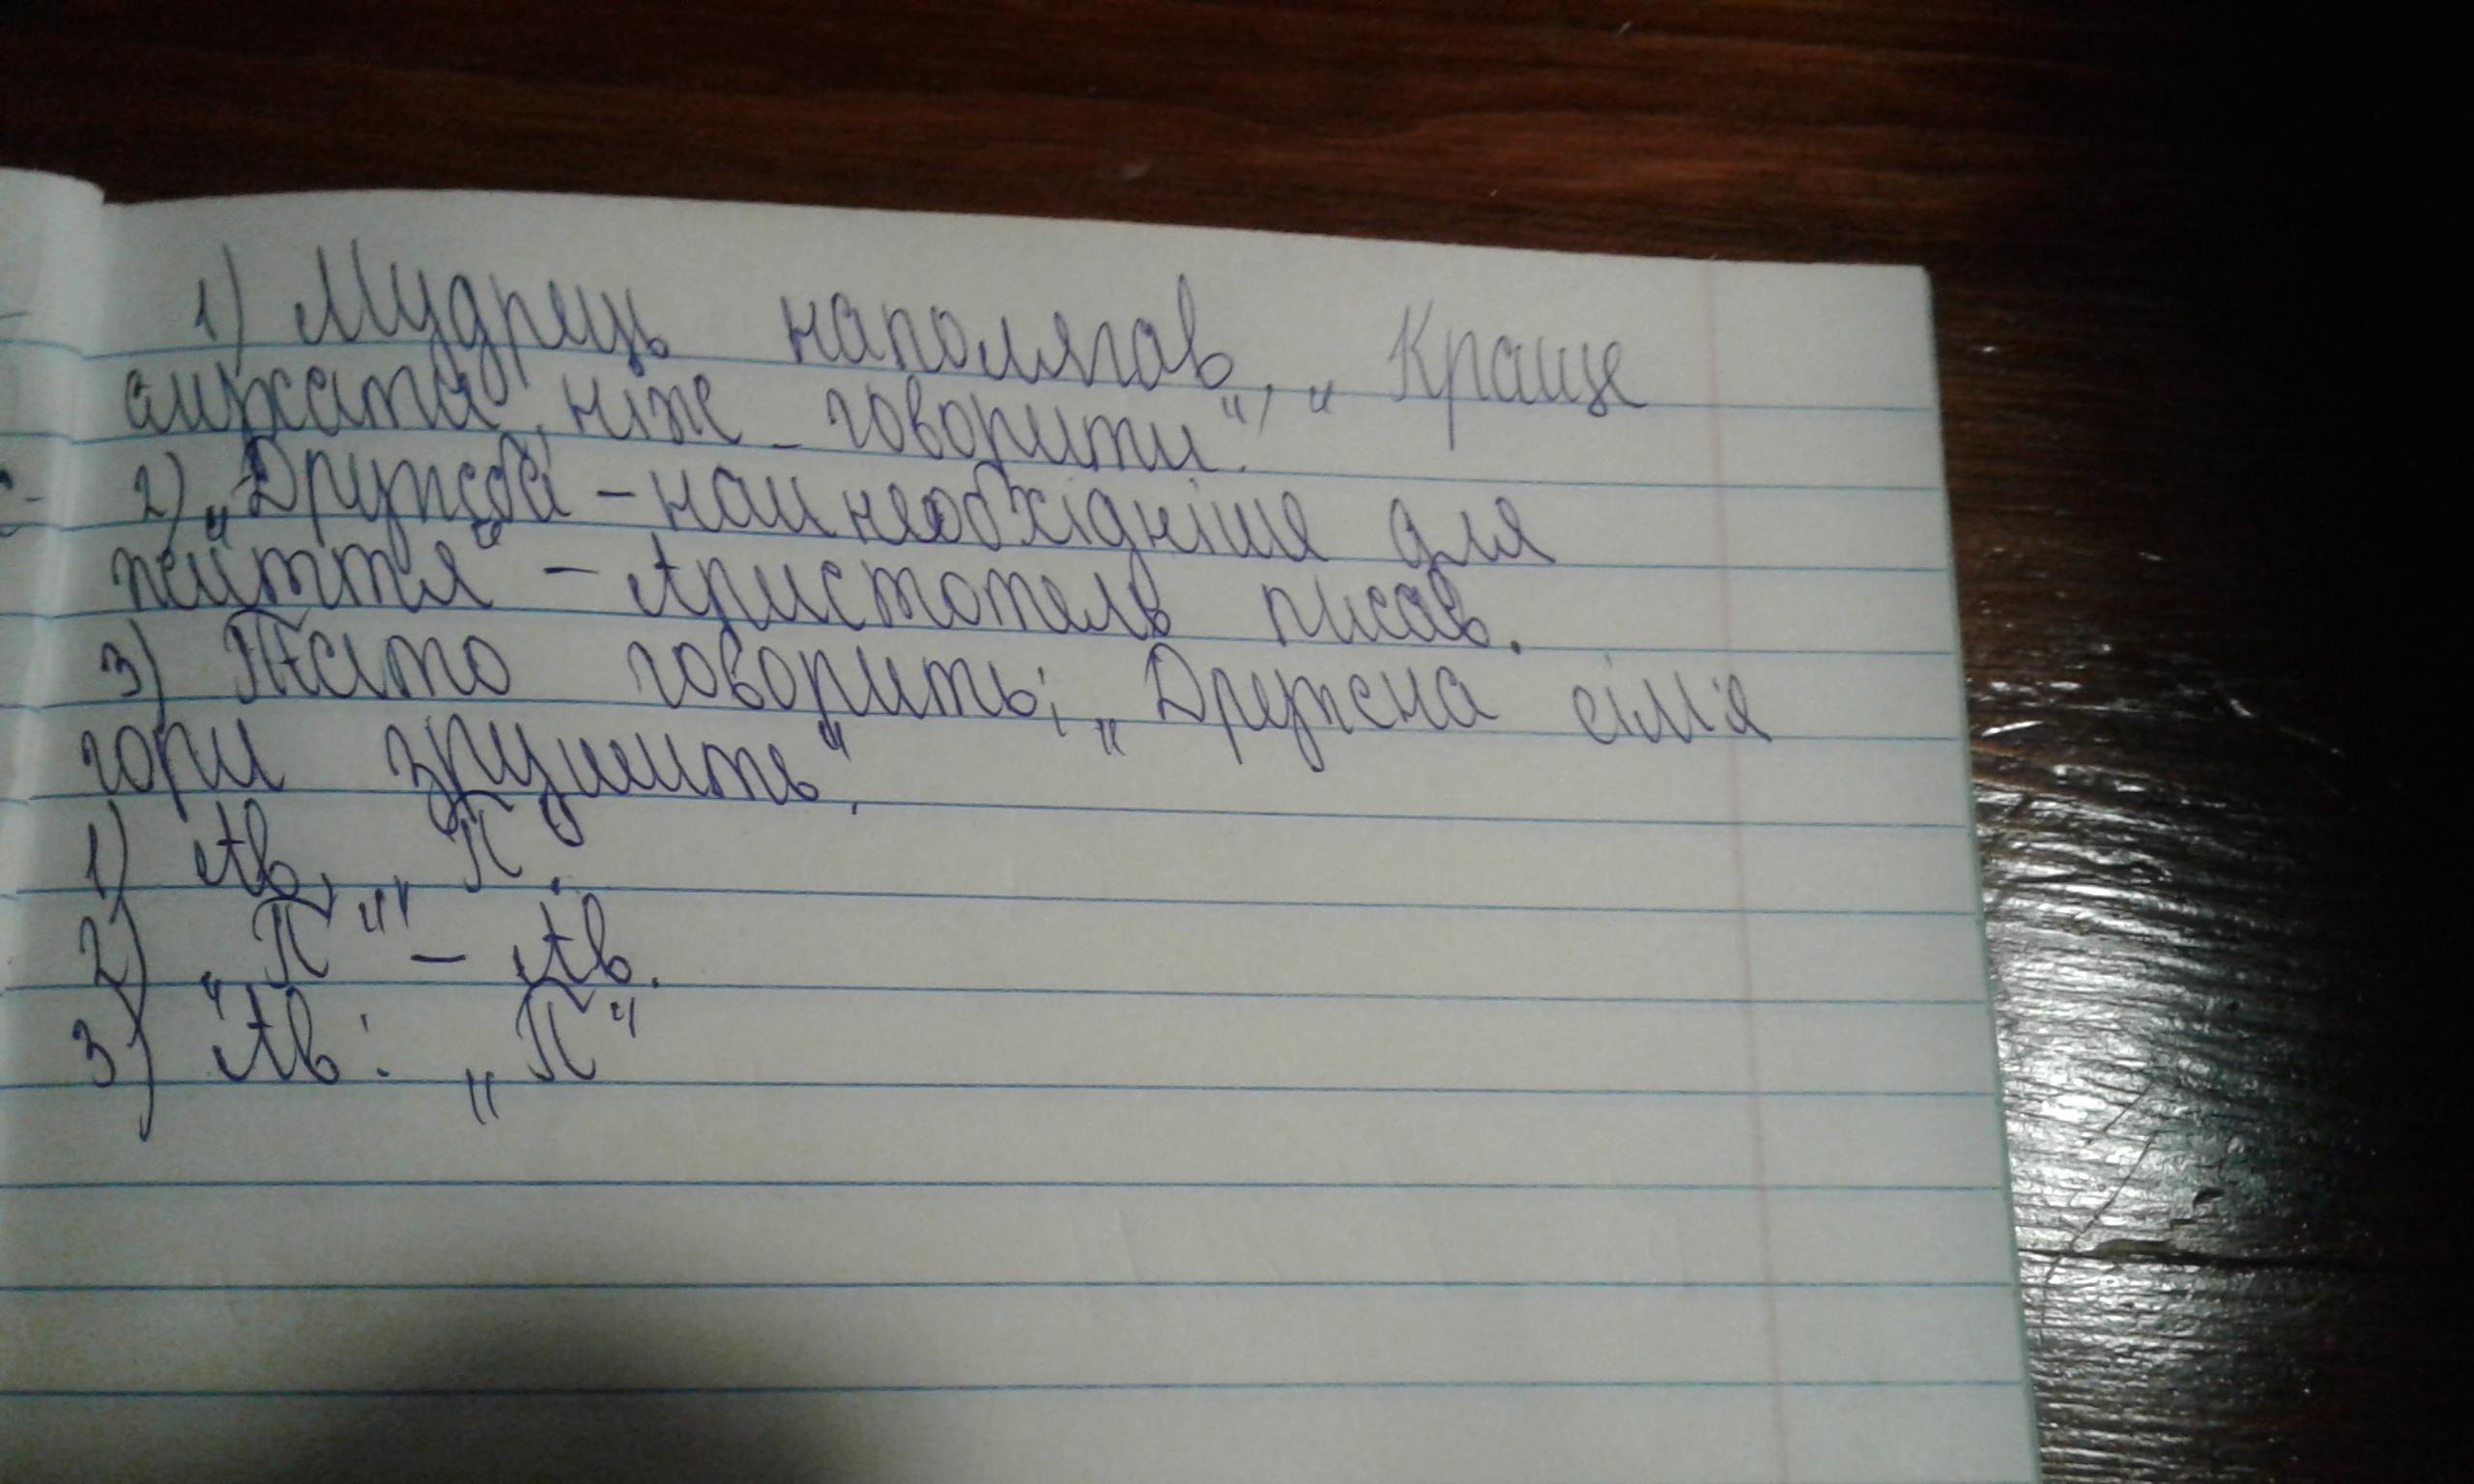 1) Мудрець наполягав, „Краще
слухати, ніже говорити".
2) „Дружба – найнеобхідніше для
життя" – Аристотель писав.
3) Тато говорить: „Дружна сім'я
гори зрушить".
1) Ав, „П".
2) „П" – Ав.
3) Ав: „П"